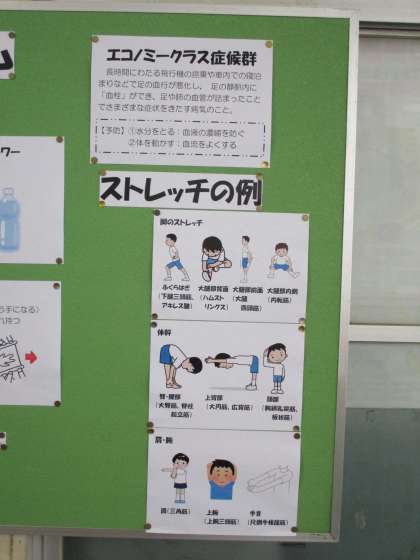 エコノミークラス症候群
長時間にわたる飛行機の搭乗や車内での寝泊
まりなどで足の血行が悪化し、足の静脈内に
「血栓」ができ、足や肺の血管が詰まったこと
でさまざまな症状をきたす病気のこと。
【予防】①水分をとる：血液の濃縮を防ぐ
②体を動かす：血流をよくする
ワー
ストレッチの例
脚のストレッチ
ふくらはぎ
（下腿三頭筋、
アキレス腱）
大腿部背面
（ハムスト
リングス）
大腿部前面
（大腿
四頭筋）
大腿部内側
（内転筋）
う手になる）
持つ
体幹
臀・腰部
（大臀筋、脊柱
起立筋）
上背部
（大円筋、広背筋）
頚部
（胸鎖乳突筋、
板状筋）
肩・腕
肩（三角筋）
上腕
（上腕三頭筋）
手首